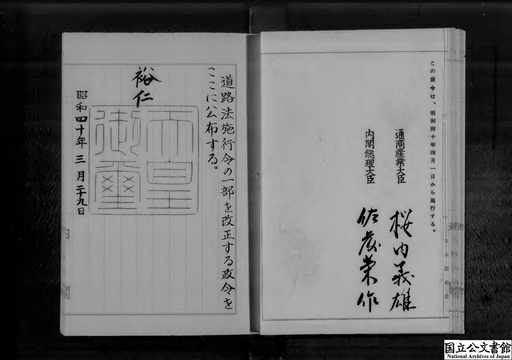 この政令は、昭和四十年四月一日から施行する。
通商産業大臣 桜内義雄
内閣総理大臣 佐藤栄作
道路法施行令の一部を改正する政令を
ここに公布する。
裕仁
天皇御璽
昭和四十年三月二十九日
国立公文書館
National Archives of Japan